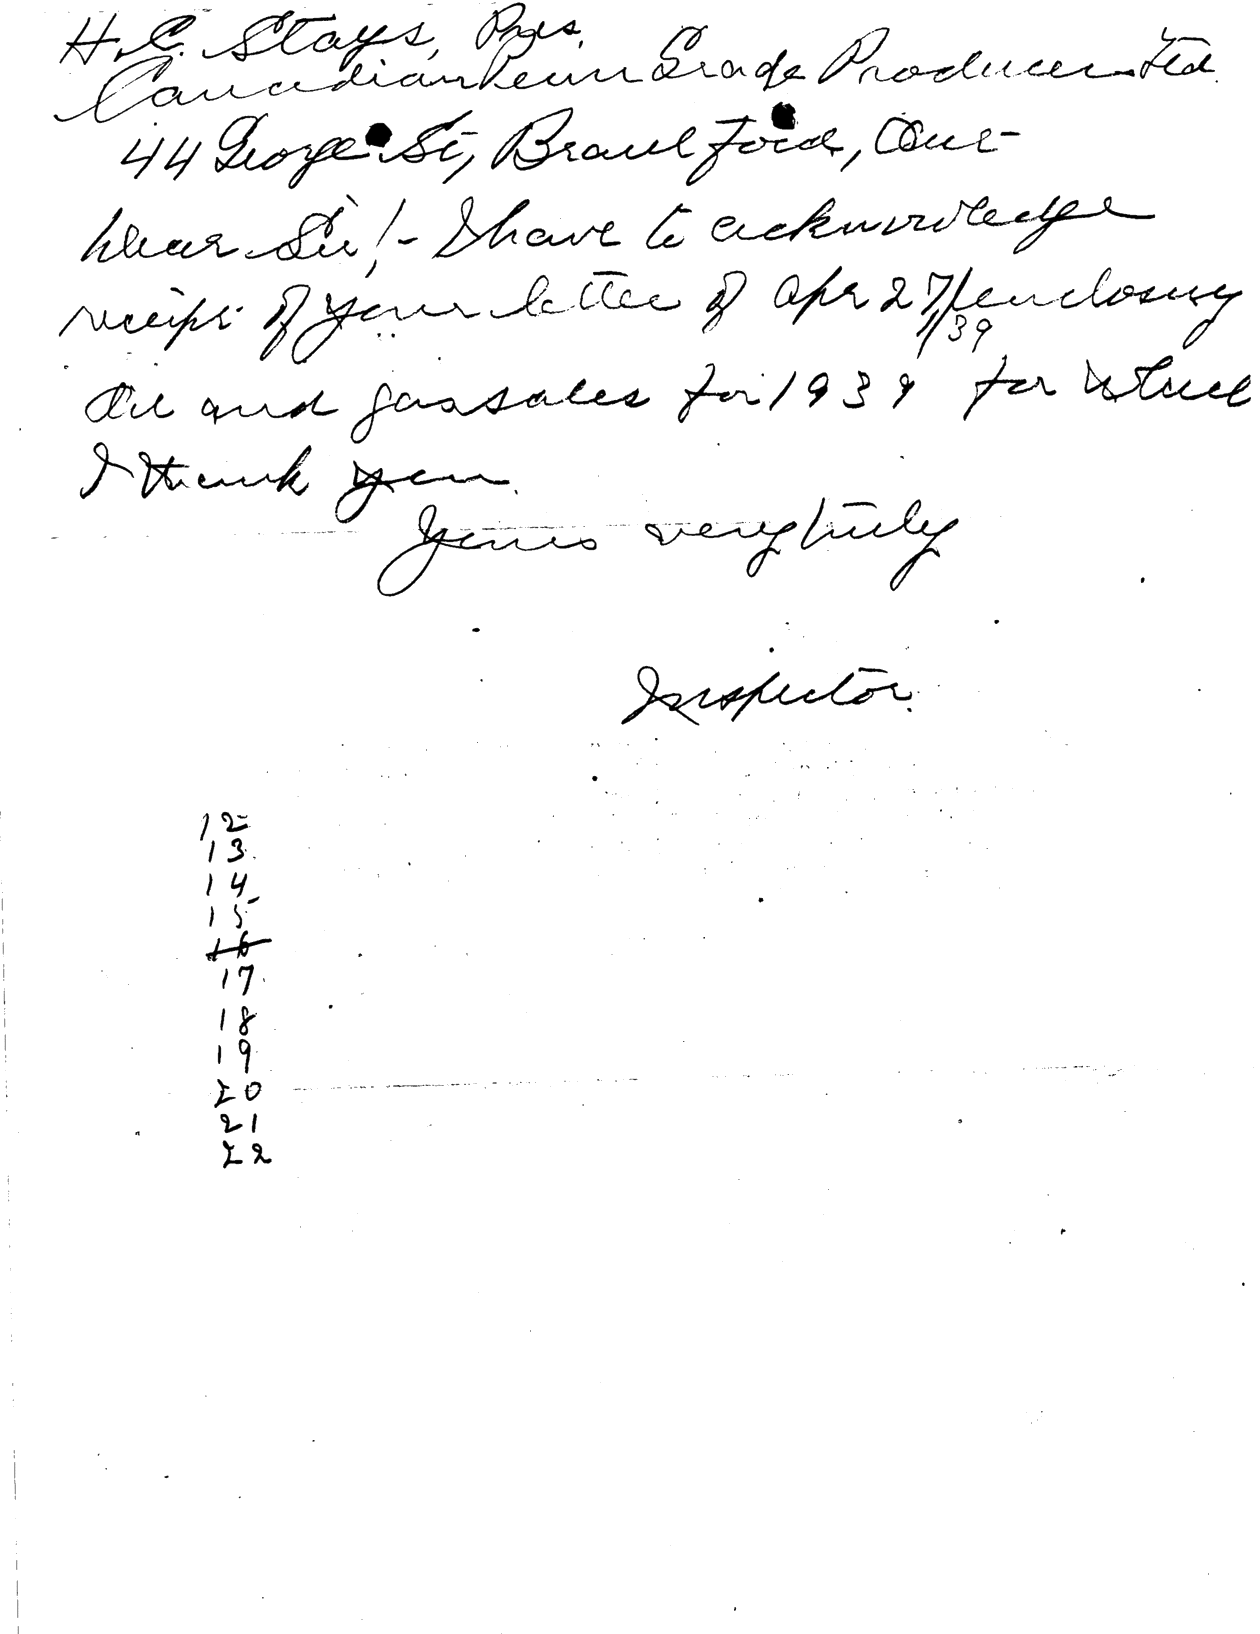 H. C. Stays, Pres.
Canadian Penn Grade Producers Ltd.
44 George St, Brantford, Ont
Dear Sir!- I have to acknowledge
receipt of your letter of Apr 27/39 enclosing
oil and gas sales for 1939 for which
I thank you.
Yours very truly
Inspector.
12
13
14
15
16
17
18
19
20
21
22